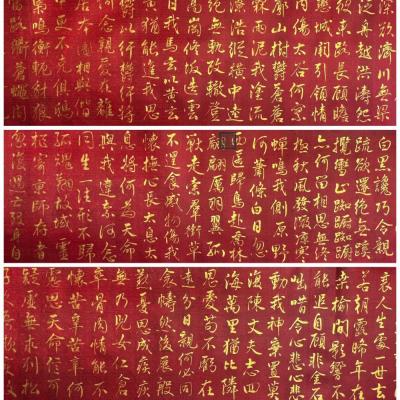 深欲濟川無梁
泛舟越洪濤怨
彼東路長顧瞻
戀城闕引領情
內傷太谷何寥
廓山樹鬱蒼蒼
霖雨泥我塗流
潦浩縱橫中逵
絕無軌改轍登
高岡修坂造雲
日我馬玄以黃玄
黃猶能進我思
鬱以紆鬱紆將
何念親愛在離
居本圖相與偕
中更不克俱鴟
梟鳴衡軛豺狼
當路衢蒼蠅間
白黑讒巧令親
疏欲還絕無蹊
攬轡止踟躕踟躕
亦何留相思無終
極秋風發微涼寒
蟬鳴我側原野
何蕭條白日忽
西匿歸鳥赴喬林
翩翩厲羽翼孤
獸走索群銜草
不遑食感物傷我
懷撫心長太息太
息將何為天命
與我違奈何念
同生一往形不歸
孤魂翔故域靈
柩寄京師存者
忽復過亡歿身自
衰人生處一世去
若朝露晞年在
桑榆間影響不
能追自顧非金石
咄唶令心悲心悲
動我神棄置莫
復陳丈夫志四
海萬里猶比隣
恩愛苟不虧在
遠分日親何必同
衾幬然後展殷
勤憂思成疾疢
無乃兒女仁倉
卒骨肉情能不
懷苦辛苦辛何
慮思天命信可
疑虛無求列仙松